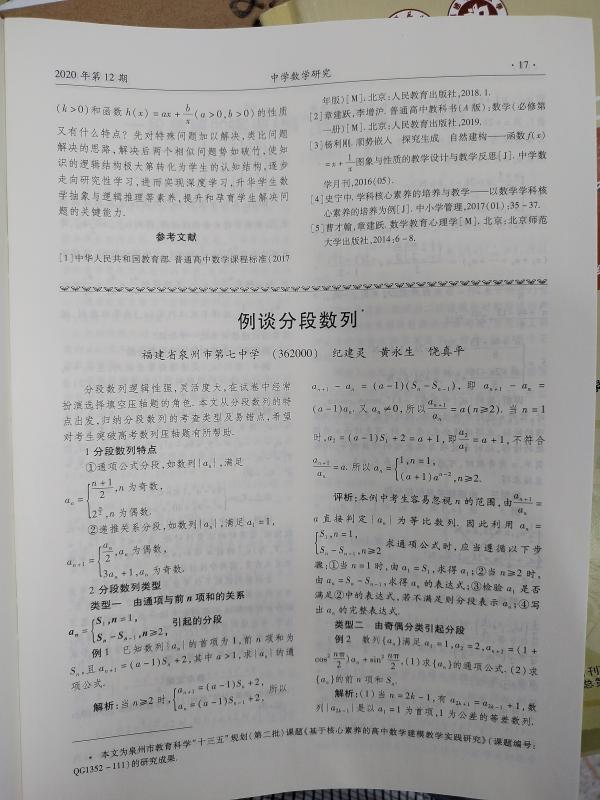 2020 年第 12 期
中学数学研究
· 17 ·
(k > 0) 和函数 h(x) = ax + b/x (a > 0, b > 0) 的性质
又有什么特点? 先对特殊问题加以解决, 类比问题
解决的思路, 解决后两个相似问题势如破竹, 使知
识的逻辑结构极大第转化为学生的认知结构, 逐步
走向研究性学习, 进而实现深度学习, 升华学生数
学抽象与逻辑推理等素养, 提升和孕育学生解决问
题的关键能力.
参考文献
[1] 中华人民共和国教育部. 普通高中数学课程标准(2017
年版)[M]. 北京: 人民教育出版社, 2018. 1.
[2] 章建跃, 李增沪. 普通高中教科书(A 版): 数学(必修第
一册)[M]. 北京: 人民教育出版社, 2019.
[3] 杨利刚. 顺势嵌入 探究生成 自然建构——函数 f(x)
= x + 1/x 图象与性质的教学设计与教学反思[J]. 中学数
学月刊, 2016(05).
[4] 史宁中. 学科核心素养的培养与教学——以数学学科核
心素养的培养为例[J]. 中小学管理, 2017(01): 35 - 37.
[5] 曹才翰, 章建跃. 数学教育心理学[M]. 北京: 北京师范
大学出版社, 2014: 6 - 8.
例谈分段数列*
福建省泉州市第七中学 (362000) 纪建灵 黄永生 饶真平
分段数列逻辑性强, 灵活度大, 在试卷中经常
扮演选择填空压轴题的角色. 本文从分段数列的特
点出发, 归纳分段数列的考查类型及易错点, 希望
对考生突破高考数列压轴题有所帮助.
1 分段数列特点
①通项公式分段, 如数列{aₙ}, 满足
aₙ = { (n + 1)/2, n 为奇数,
2^(n/2), n 为偶数.
②递推关系分段, 如数列{aₙ}, 满足 a₁ = 1,
aₙ₊₁ = { aₙ/2, aₙ 为偶数,
3aₙ + 1, aₙ 为奇数.
2 分段数列类型
类型一 由通项与前 n 项和的关系
aₙ = { S₁, n = 1,
Sₙ - Sₙ₋₁, n ≥ 2, 引起的分段
例 1 已知数列{aₙ}的首项为 1, 前 n 项和为
Sₙ, 且 aₙ₊₁ = (a - 1)Sₙ + 2, 其中 a > 1, 求{aₙ}的通
项公式.
解析: 当 n ≥ 2 时, { aₙ₊₁ = (a - 1)Sₙ + 2,
aₙ = (a - 1)Sₙ₋₁ + 2, 所以
aₙ₊₁ - aₙ = (a - 1)(Sₙ - Sₙ₋₁), 即 aₙ₊₁ - aₙ =
(a - 1)aₙ. 又 aₙ ≠ 0, 所以 aₙ₊₁/aₙ = a(n ≥ 2). 当 n = 1
时, a₂ = (a - 1)S₁ + 2 = a + 1, 即 a₂/a₁ = a + 1, 不符合
aₙ₊₁/aₙ = a. 所以 aₙ = { 1, n = 1,
(a + 1)aⁿ⁻², n ≥ 2.
评析: 本例中考生容易忽视 n 的范围, 由 aₙ₊₁/aₙ =
a 直接判定{aₙ}为等比数列. 因此利用 aₙ =
{ S₁, n = 1,
Sₙ - Sₙ₋₁, n ≥ 2 求通项公式时, 应当遵循以下步
骤: ①当 n = 1 时, 由 a₁ = S₁, 求得 a₁; ②当 n ≥ 2 时,
由 aₙ = Sₙ - Sₙ₋₁, 求得 aₙ 的表达式; ③检验 a₁ 是否
满足②中的表达式, 若不满足则分段表示 aₙ; ④写
出 aₙ 的完整表达式.
类型二 由奇偶分类引起分段
例 2 数列{aₙ}满足 a₁ = 1, a₂ = 2, aₙ₊₂ = (1 +
cos² nπ/2)aₙ + sin² nπ/2, (1) 求{aₙ}的通项公式. (2) 求
{aₙ}的前 n 项和 Sₙ.
解析: (1) 当 n = 2k - 1, 有 a₂ₖ₊₁ = a₂ₖ₋₁ + 1, 数
列{a₂ₖ₋₁}是以 a₁ = 1 为首项, 1 为公差的等差数列.
* 本文为泉州市教育科学"十三五"规划(第二批)课题《基于核心素养的高中数学建模教学实践研究》(课题编号:
QG1352 - 111) 的研究成果.